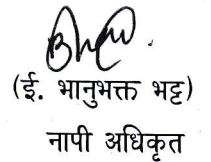 (ई. भानुभक्त भट्ट)
नापी अधिकृत